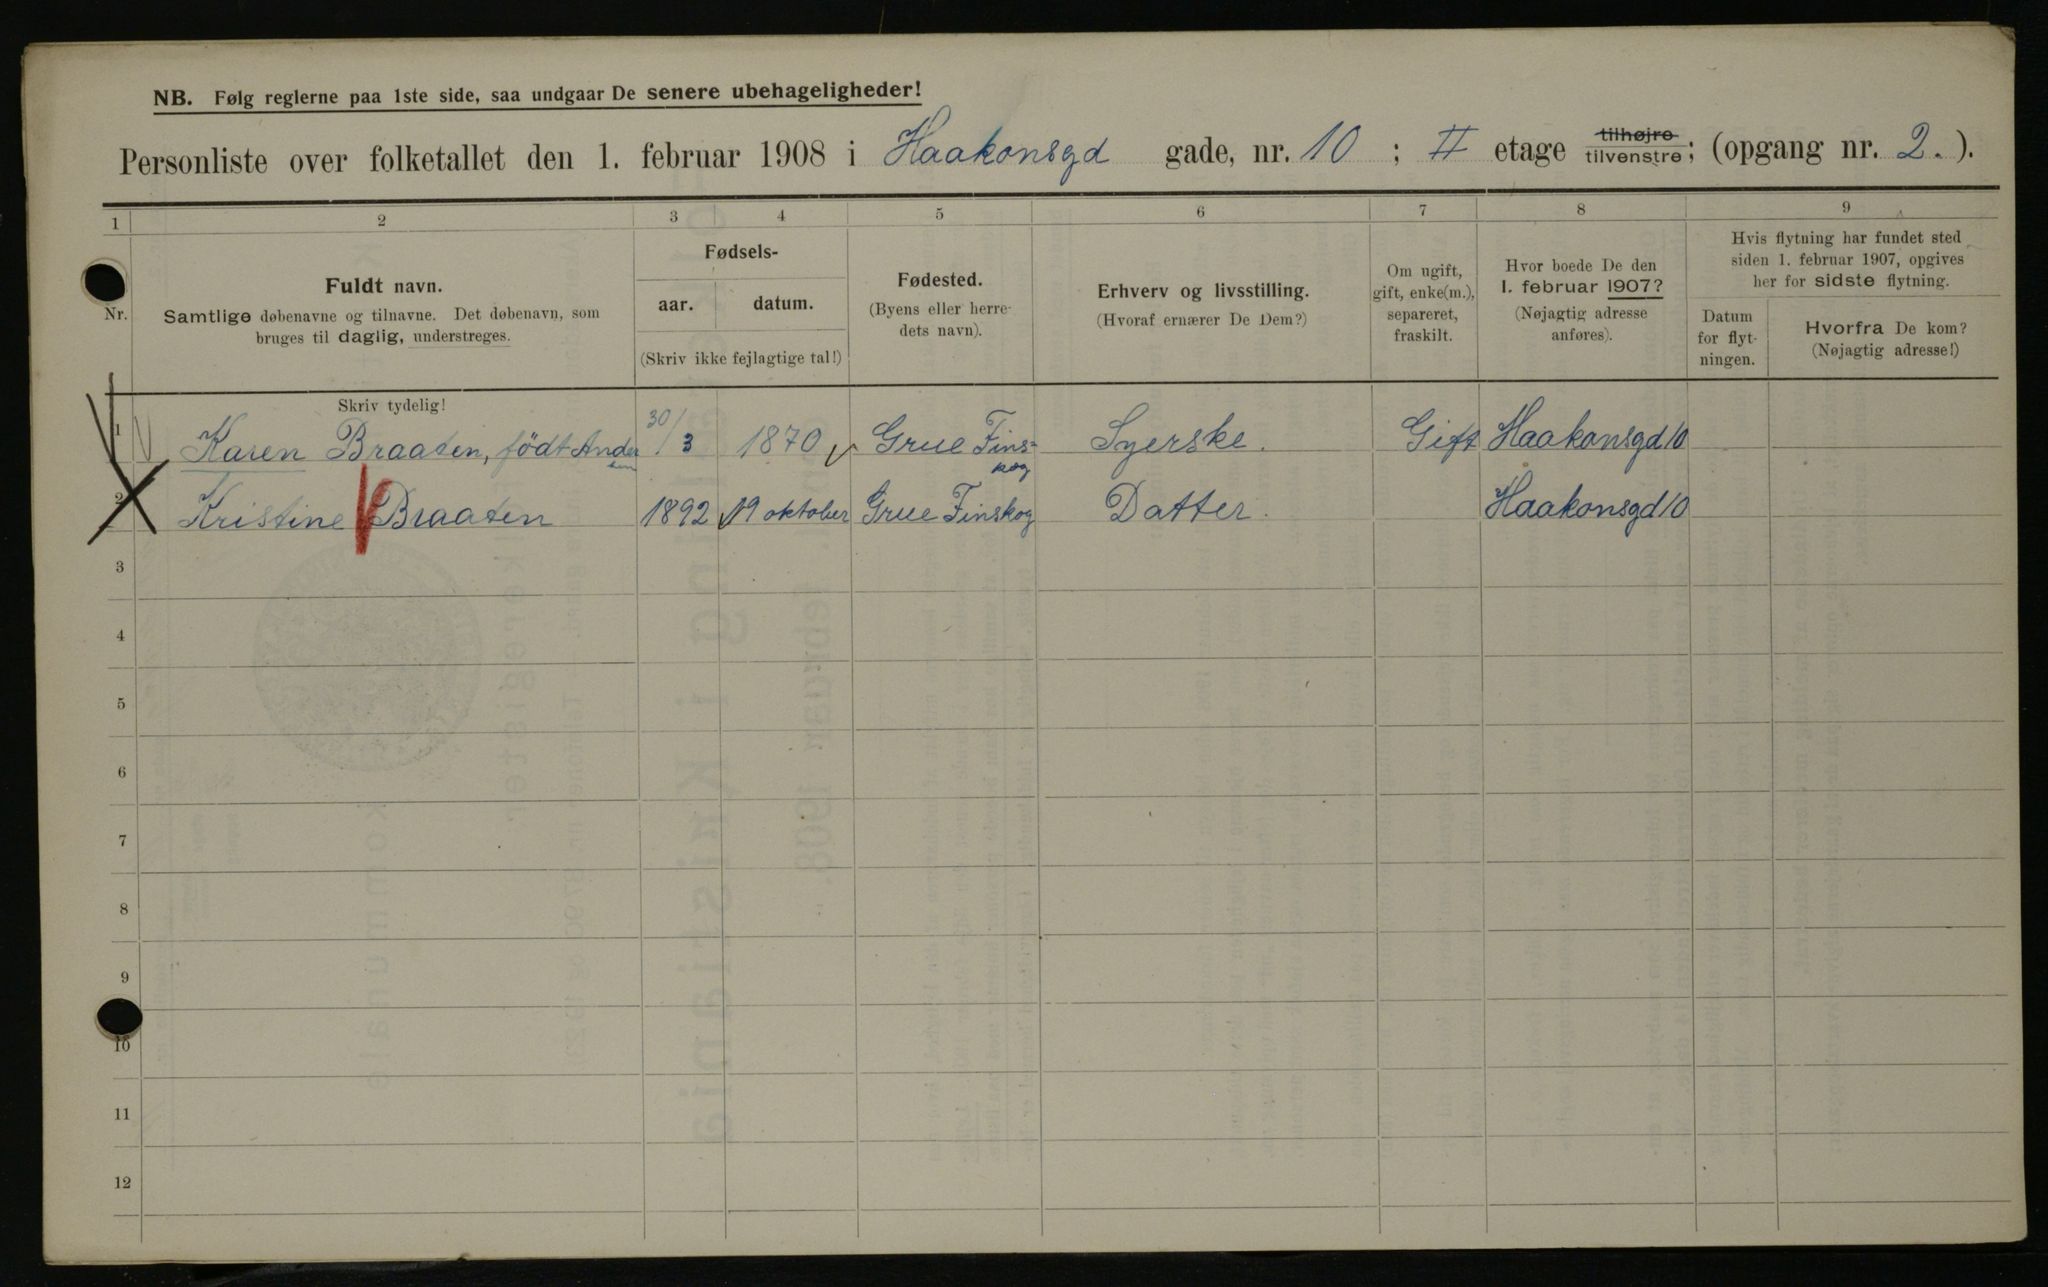 NB. Følg reglerne paa 1ste side, saa undgaar De senere ubehageligheder!
Personliste over folketallet den 1. februar 1908 i Haakonsgd gade, nr. 10 ; II etage tilhøjre tilvenstre; (opgang nr. 2.).
1 2 3 4 5 6 7 8 9
Nr.
Fuldt navn.
Samtlige døbenavne og tilnavne. Det døbenavn, som
bruges til daglig, understreges.
Fødsels-
aar. datum.
(Skriv ikke fejlagtige tal!)
Fødested.
(Byens eller herre-
dets navn).
Erhverv og livsstilling.
(Hvoraf ernærer De Dem?)
Om ugift,
gift, enke(m.),
separeret,
fraskilt.
Hvor boede De den
1. februar 1907?
(Nøjagtig adresse
anføres).
Hvis flytning har fundet sted
siden 1. februar 1907, opgives
her for sidste flytning.
Datum
for flyt-
ningen.
Hvorfra De kom?
(Nøjagtig adresse!)
Skriv tydelig!
1 Karen Braaten, født Ander
sen 30/3 1870 Grue Fins=
kog Syerske. Gift Haakonsgd 10
2 Kristine Braaten 1892 19 oktober Grue Finskog Datter. Haakonsgd 10
3
4
5
6
7
8
9
10
11
12